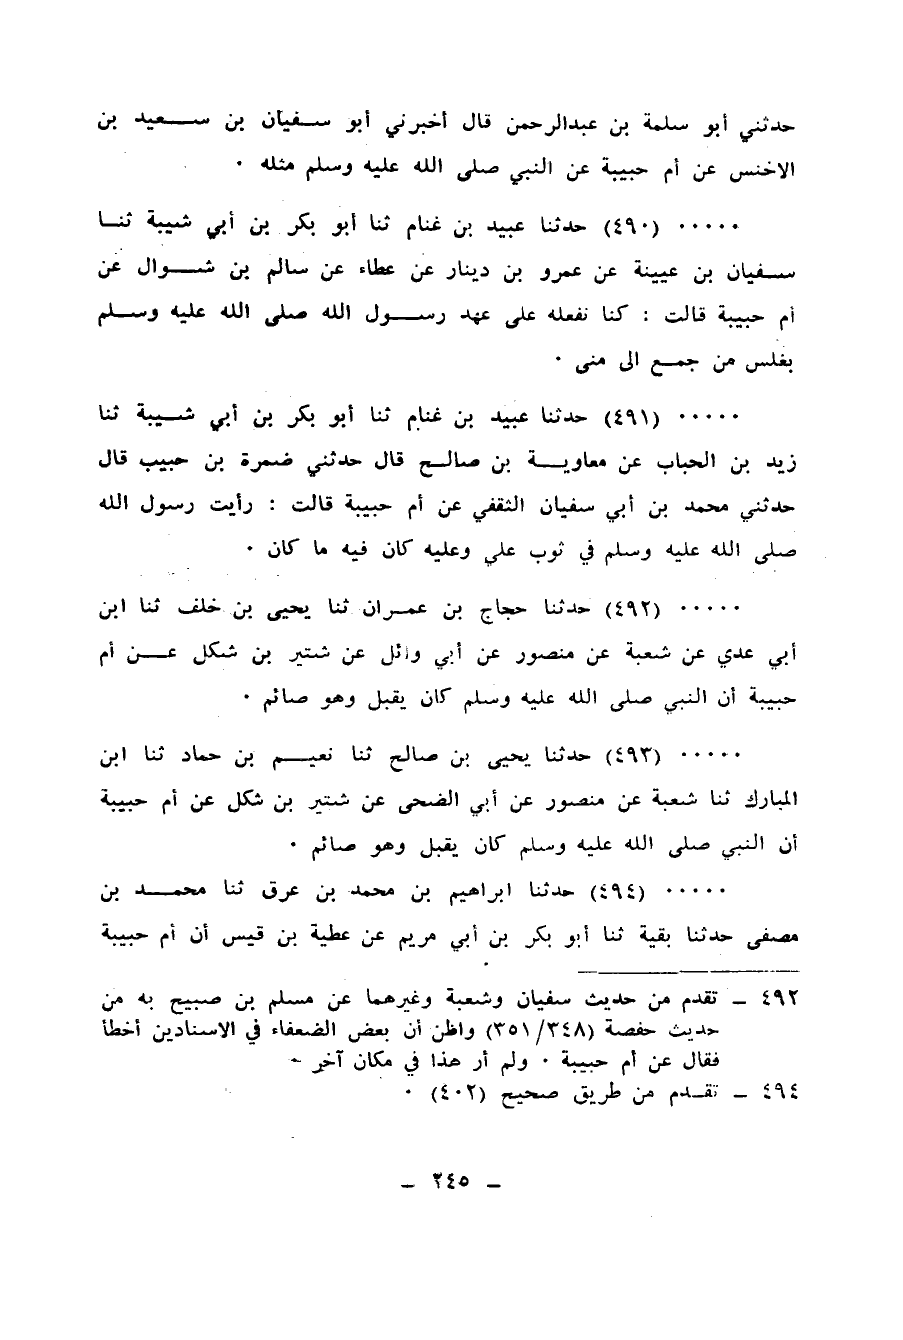 حدثني أبو سلمة بن عبدالرحمن قال أخبرني أبو سفيان بن سعيد بن
الاخنس عن أم حبيبة عن النبي صلى الله عليه وسلم مثله ٠
٠٠٠٠٠ (٤٩٠) حدثنا عبيد بن غنام ثنا أبو بكر بن أبي شيبة ثنا
سفيان بن عيينة عن عمرو بن دينار عن عطاء عن سالم بن شوال عن
أم حبيبة قالت : كنا نفعله على عهد رسول الله صلى الله عليه وسلم
بغلس من جمع الى منى ٠
٠٠٠٠٠ (٤٩١) حدثنا عبيد بن غنام ثنا أبو بكر بن أبي شيبة ثنا
زيد بن الحباب عن معاوية بن صالح قال حدثني ضمرة بن حبيب قال
حدثني محمد بن أبي سفيان الثقفي عن أم حبيبة قالت : رأيت رسول الله
صلى الله عليه وسلم في ثوب علي وعليه كان فيه ما كان ٠
٠٠٠٠٠ (٤٩٢) حدثنا حجاج بن عمران ثنا يحيى بن خلف ثنا ابن
أبي عدي عن شعبة عن منصور عن أبي وائل عن شتير بن شكل عن أم
حبيبة أن النبي صلى الله عليه وسلم كان يقبل وهو صائم ٠
٠٠٠٠٠ (٤٩٣) حدثنا يحيى بن صالح ثنا نعيم بن حماد ثنا ابن
المبارك ثنا شعبة عن منصور عن أبي الضحى عن شتير بن شكل عن أم حبيبة
أن النبي صلى الله عليه وسلم كان يقبل وهو صائم ٠
٠٠٠٠٠ (٤٩٤) حدثنا ابراهيم بن محمد بن عرق ثنا محمد بن
مصفى حدثنا بقية ثنا أبو بكر بن أبي مريم عن عطية بن قيس أن أم حبيبة
٤٩٢ – تقدم من حديث سفيان وشعبة وغيرهما عن مسلم بن صبيح به من
حديث حفصة (٣٥١/٣٤٨) واظن أن بعض الضعفاء في الاسنادين أخطأ
فقال عن أم حبيبة ٠ ولم أر هذا في مكان آخر –
٤٩٤ – تقدم من طريق صحيح (٤٠٢) ٠
– ٢٤٥ –